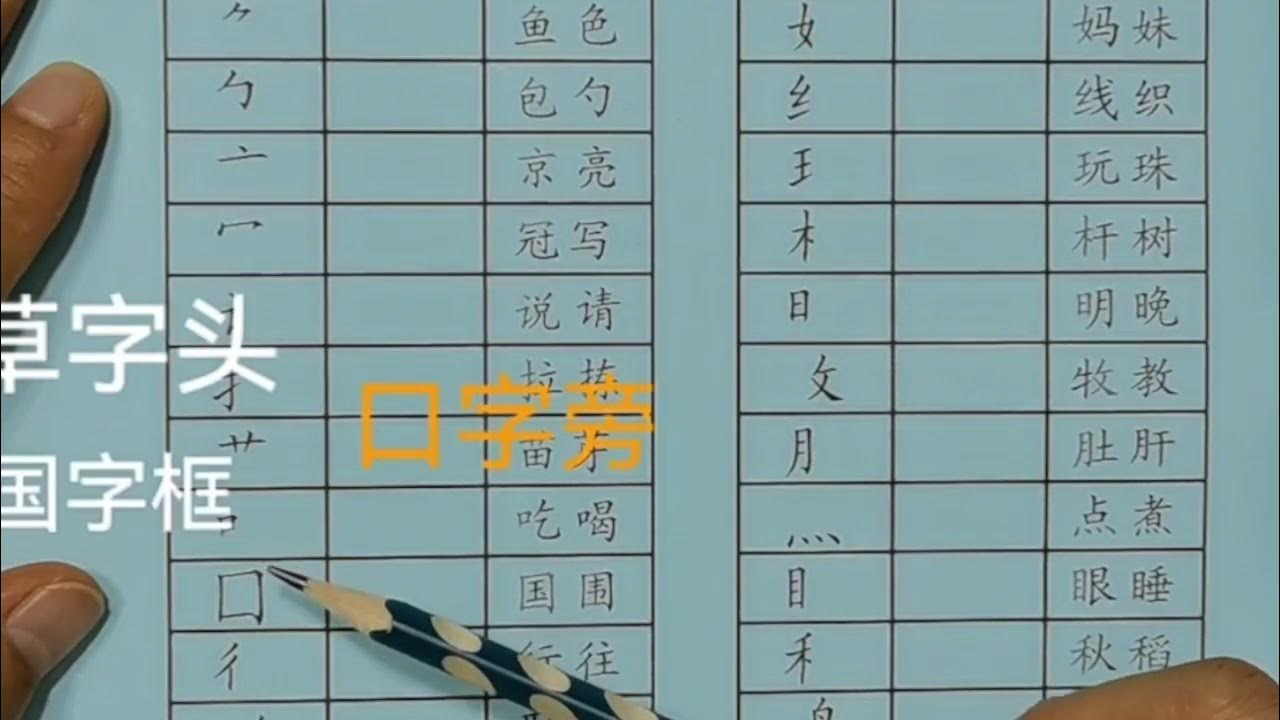 ⺈ 鱼 色
勹 包 勺
亠 京 亮
冖 冠 写
讠 说 请
草字头
扌 拉 拣
口字旁
艹 苗 芽
国字框
口 吃 喝
囗 国 围
彳 行 往
女 妈 妹
纟 线 织
王 玩 珠
木 杆 树
日 明 晚
攵 牧 教
月 肚 肝
灬 点 煮
目 眼 睡
禾 秋 稻